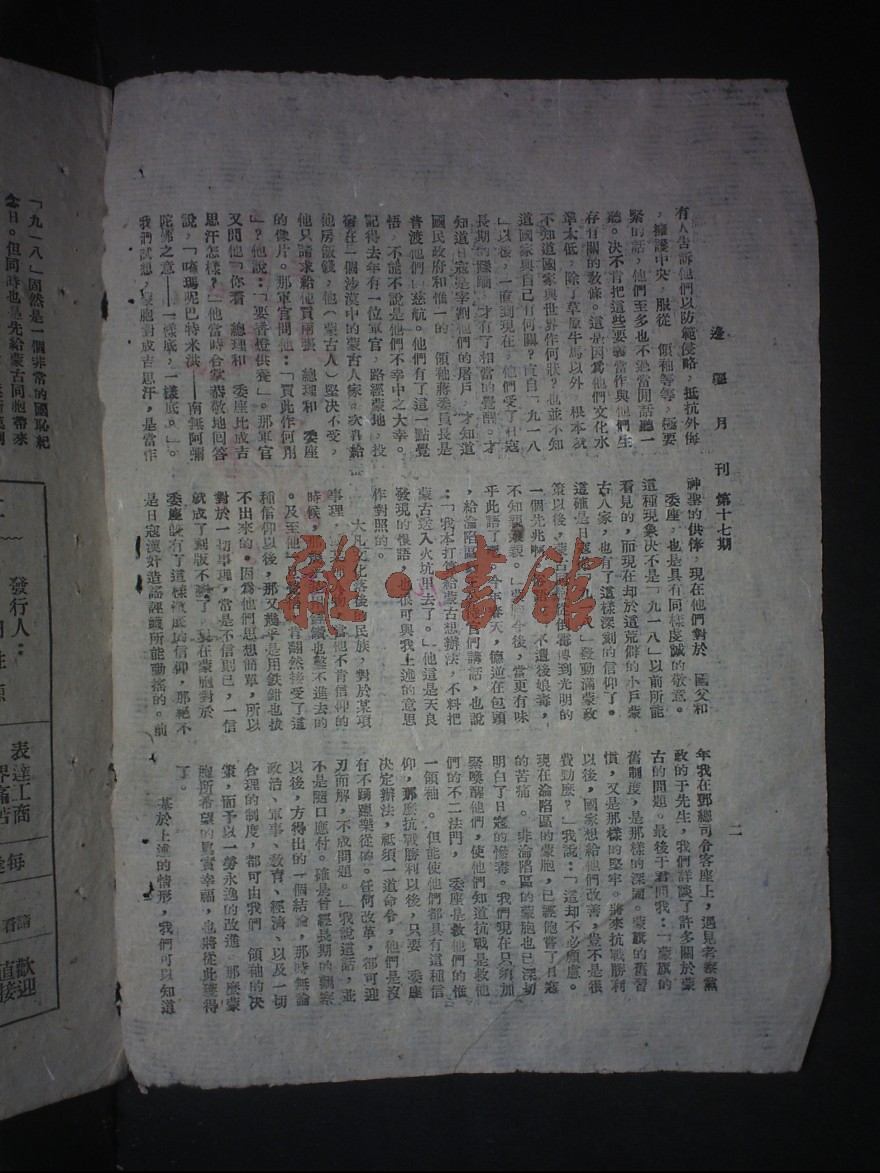 邊疆月刊 第十七期
二
有人告訴他們以防範侵略，抵抗外侮
，擁護中央，服從 領袖等等，極要
緊的話，他們至多也不過當閒話聽一
聽。決不肯把這些要義當作與他們生
存有關的教條。這是因為他們文化水
準太低，除了草原牛馬以外，根本就
不知道國家與世界作何狀？也並不知
道國家與自己有何關？直自「九一八
」以後，一直到現在，他們受了日寇
長期的蹂躪，才有了相當的覺醒。才
知道日寇是宰割他們的屠戶，才知道
國民政府和惟一的 領袖蔣委員長是
普渡他們的慈航。他們有了這一點覺
悟，不能不說是他們不幸中之大幸。
記得去年有一位軍官，路經蒙地，投
宿在一個沙漠中的蒙古人家。次晨給
他房飯錢，他（蒙古人）堅決不受，
他只請求給他買兩張 總理和 委座
的像片。那軍官問他：「買此作何用
」？他說：「要香燈供養」。那軍官
又問他「你看 總理和 委座比成吉
思汗怎樣？」他當時合掌恭敬地回答
說，「嗡瑪呢巴特米洪——南無阿彌
陀佛之意——一樣底，一樣底。」。
我們試想，蒙胞對成吉思汗，是當作
神聖的供俸，現在他們對於 國父和
委座，也是具有同樣虔誠的敬意。
這種現象決不是「九一八」以前所能
看見的，而現在却於這荒僻的小戶蒙
古人家，也有了這樣深刻的信仰了。
這確是日寇從「九一八」發動滿蒙政
策以後，蒙古
一個先兆啊
不知
乎此語了
，給淪陷區
：「我本打算給蒙古想辦法，不料把
蒙古送入火坑里去了。」他這是天良
發現的懺語，也很可與我上述的意思
作對照的。
大凡文化落後 民族，對於某項
事理，
時候，
。及至他
種信仰以後，那又幾乎是用鉄鉗也拔
不出來的。因為他們思想簡單，所以
對於一切事理，常是不信則已，一信
就成了刻版不變了。現在蒙胞對於
委座既有了這樣澈底的信仰，那絕不
是日寇漢奸造謠誣衊所能動搖的。前
年我在鄧總司令客座上，遇見考察黨
政的于先生，我們詳談了許多關於蒙
古的問題。最後于君問我：「蒙旗的
舊制度，是那樣的深固。蒙旗的舊習
慣，又是那樣的堅牢。將來抗戰勝利
以後，國家想給他們改善，豈不是很
費勁麼？」我說：「這却不必顧慮。
現在淪陷區的蒙胞，已經飽嘗了日寇
的苦痛。非淪陷區的蒙胞也已深切
明白了日寇的慘毒。我們現在只須加
緊喚醒他們，使他們知道抗戰是救他
們的不二法門， 委座是救他們的惟
一領袖。但能使他們都具有這種信
仰，那麼抗戰勝利以後，只要 委座
決定辦法，祗須一道命令，他們是沒
有不踴躍樂從的。任何改革，都可迎
刃而解，不成問題。」我說這話，並
不是隨口應付。確是曾經長期的觀察
以後，方得出的一個結論，那時無論
政治、軍事、教育、經濟、以及一切
合理的制度，都可由我們 領袖的决
策，而予以一勞永逸的改進。那麼蒙
胞所希望的真實幸福，也將從此獲得
了。
基於上述的情形，我們可以知道
「九一八」固然是一個非常的國恥紀
念日。但同時也是先給蒙古同胞帶來
發行人：
表達工商
界痛苦
請看
歡迎
直接
雜·書館